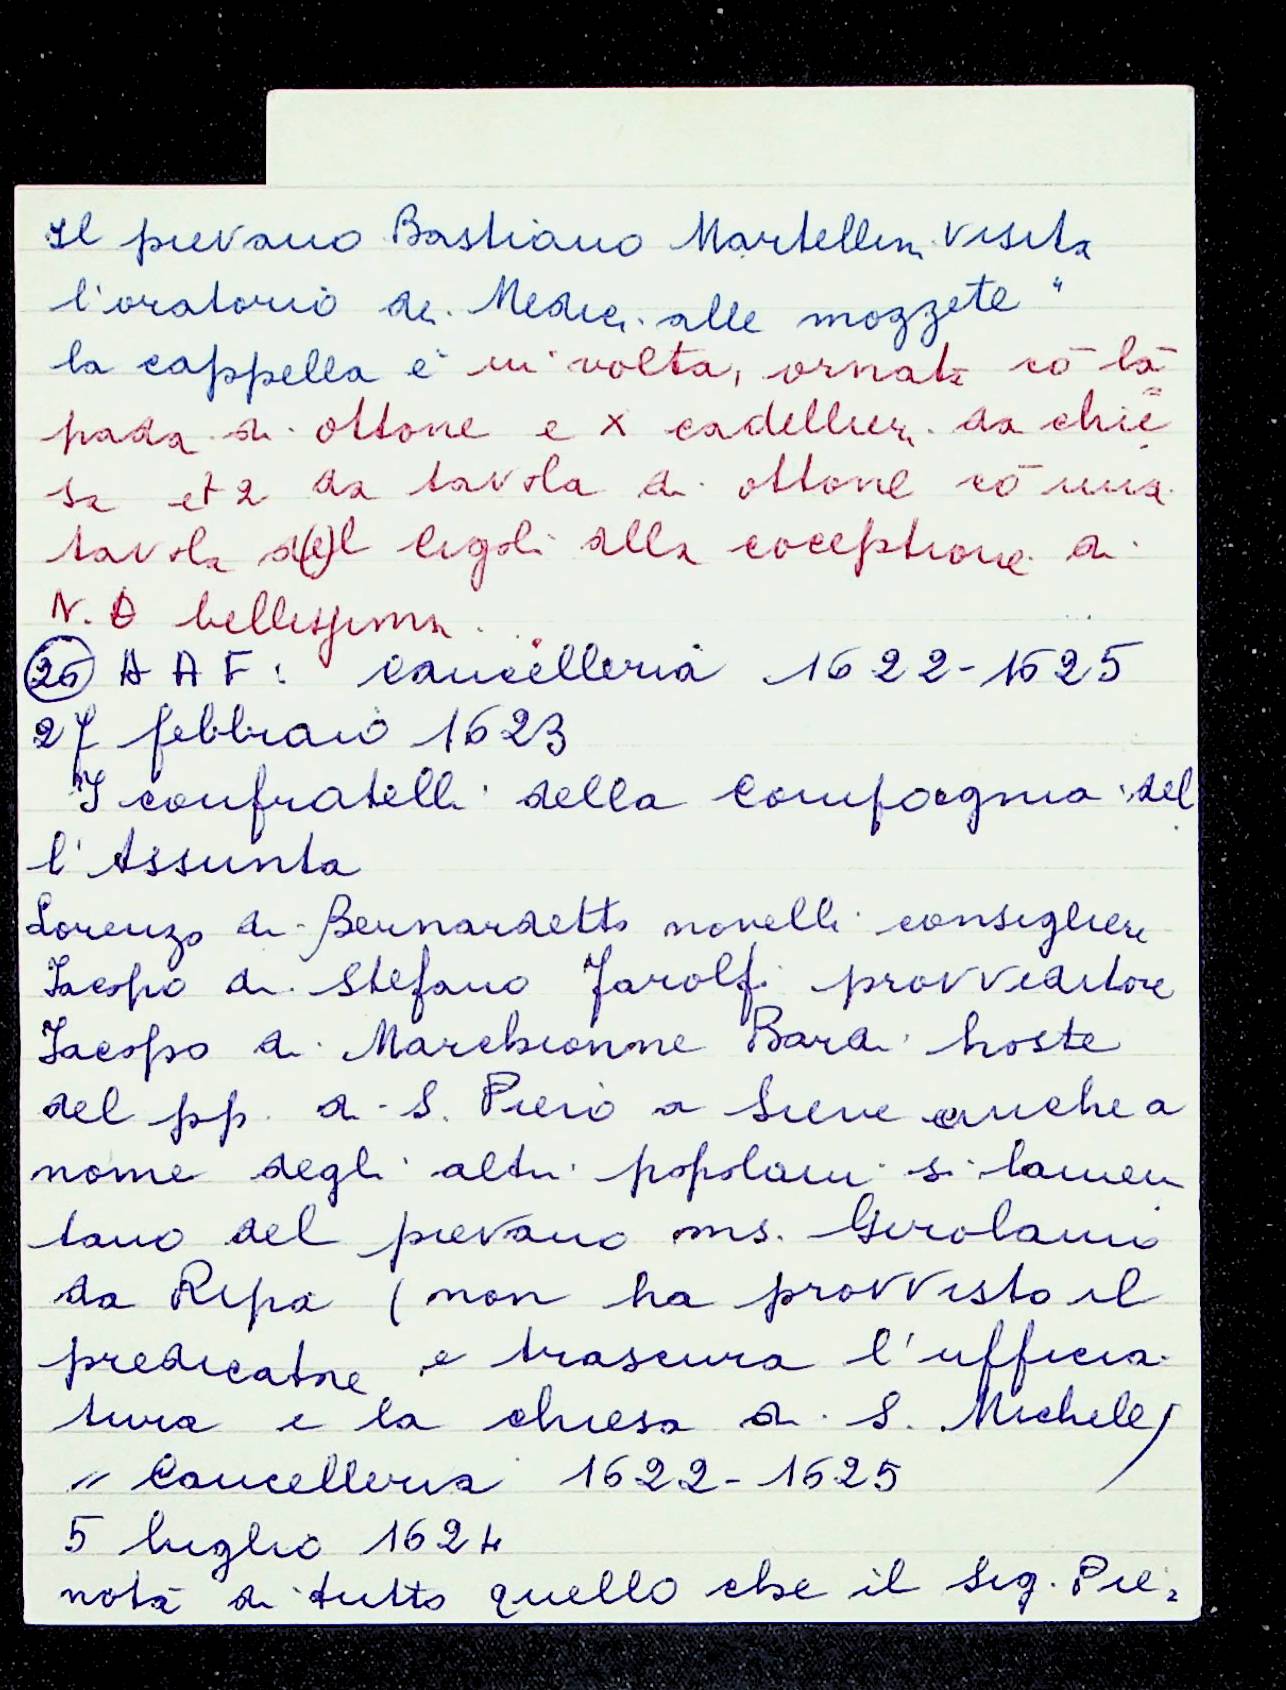 Il pievano Bastiano Martellini visita
l'oratorio dei Medici alle mozzete "
la cappella è in volta, ornata cō lā
pada di ottone e x cādellieri da chiē
sa et 2 da tavola di ottone cō una
tavola d(e)l ligoli alla coceptione di
N. D bellissima.
26 A A F: Cancelleria 1622-1625
27 febbraio 1623
I confratelli della Compagnia del
l'Assunta
Lorenzo di Bernardetto novelli consigliere
Iacopo di Stefano Jarolfi provveditore
Iacopo di Marchionne Bardi hoste
del pp. di S. Piero a Sieve anche a
nome degli altri popolani si lamen
tano del pievano ms. Girolamo
da Ripa (non ha provvisto il
predicatore e trascura l'ufficia
tura e la chiesa di S. Michele)
" Cancelleria 1622-1625
5 luglio 1624
nota di tutto quello che il Sig. Pie=